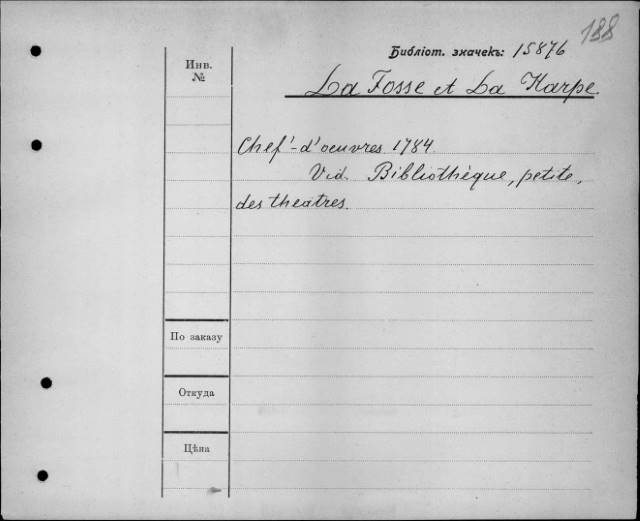 188
Библіот. значекъ: 15876
Инв.
№
La Fosse et La Harpe.
Chef'-d'oeuvres 1784
Vid. Bibliothèque, petite,
des theatres.
По заказу
Откуда
Цѣна